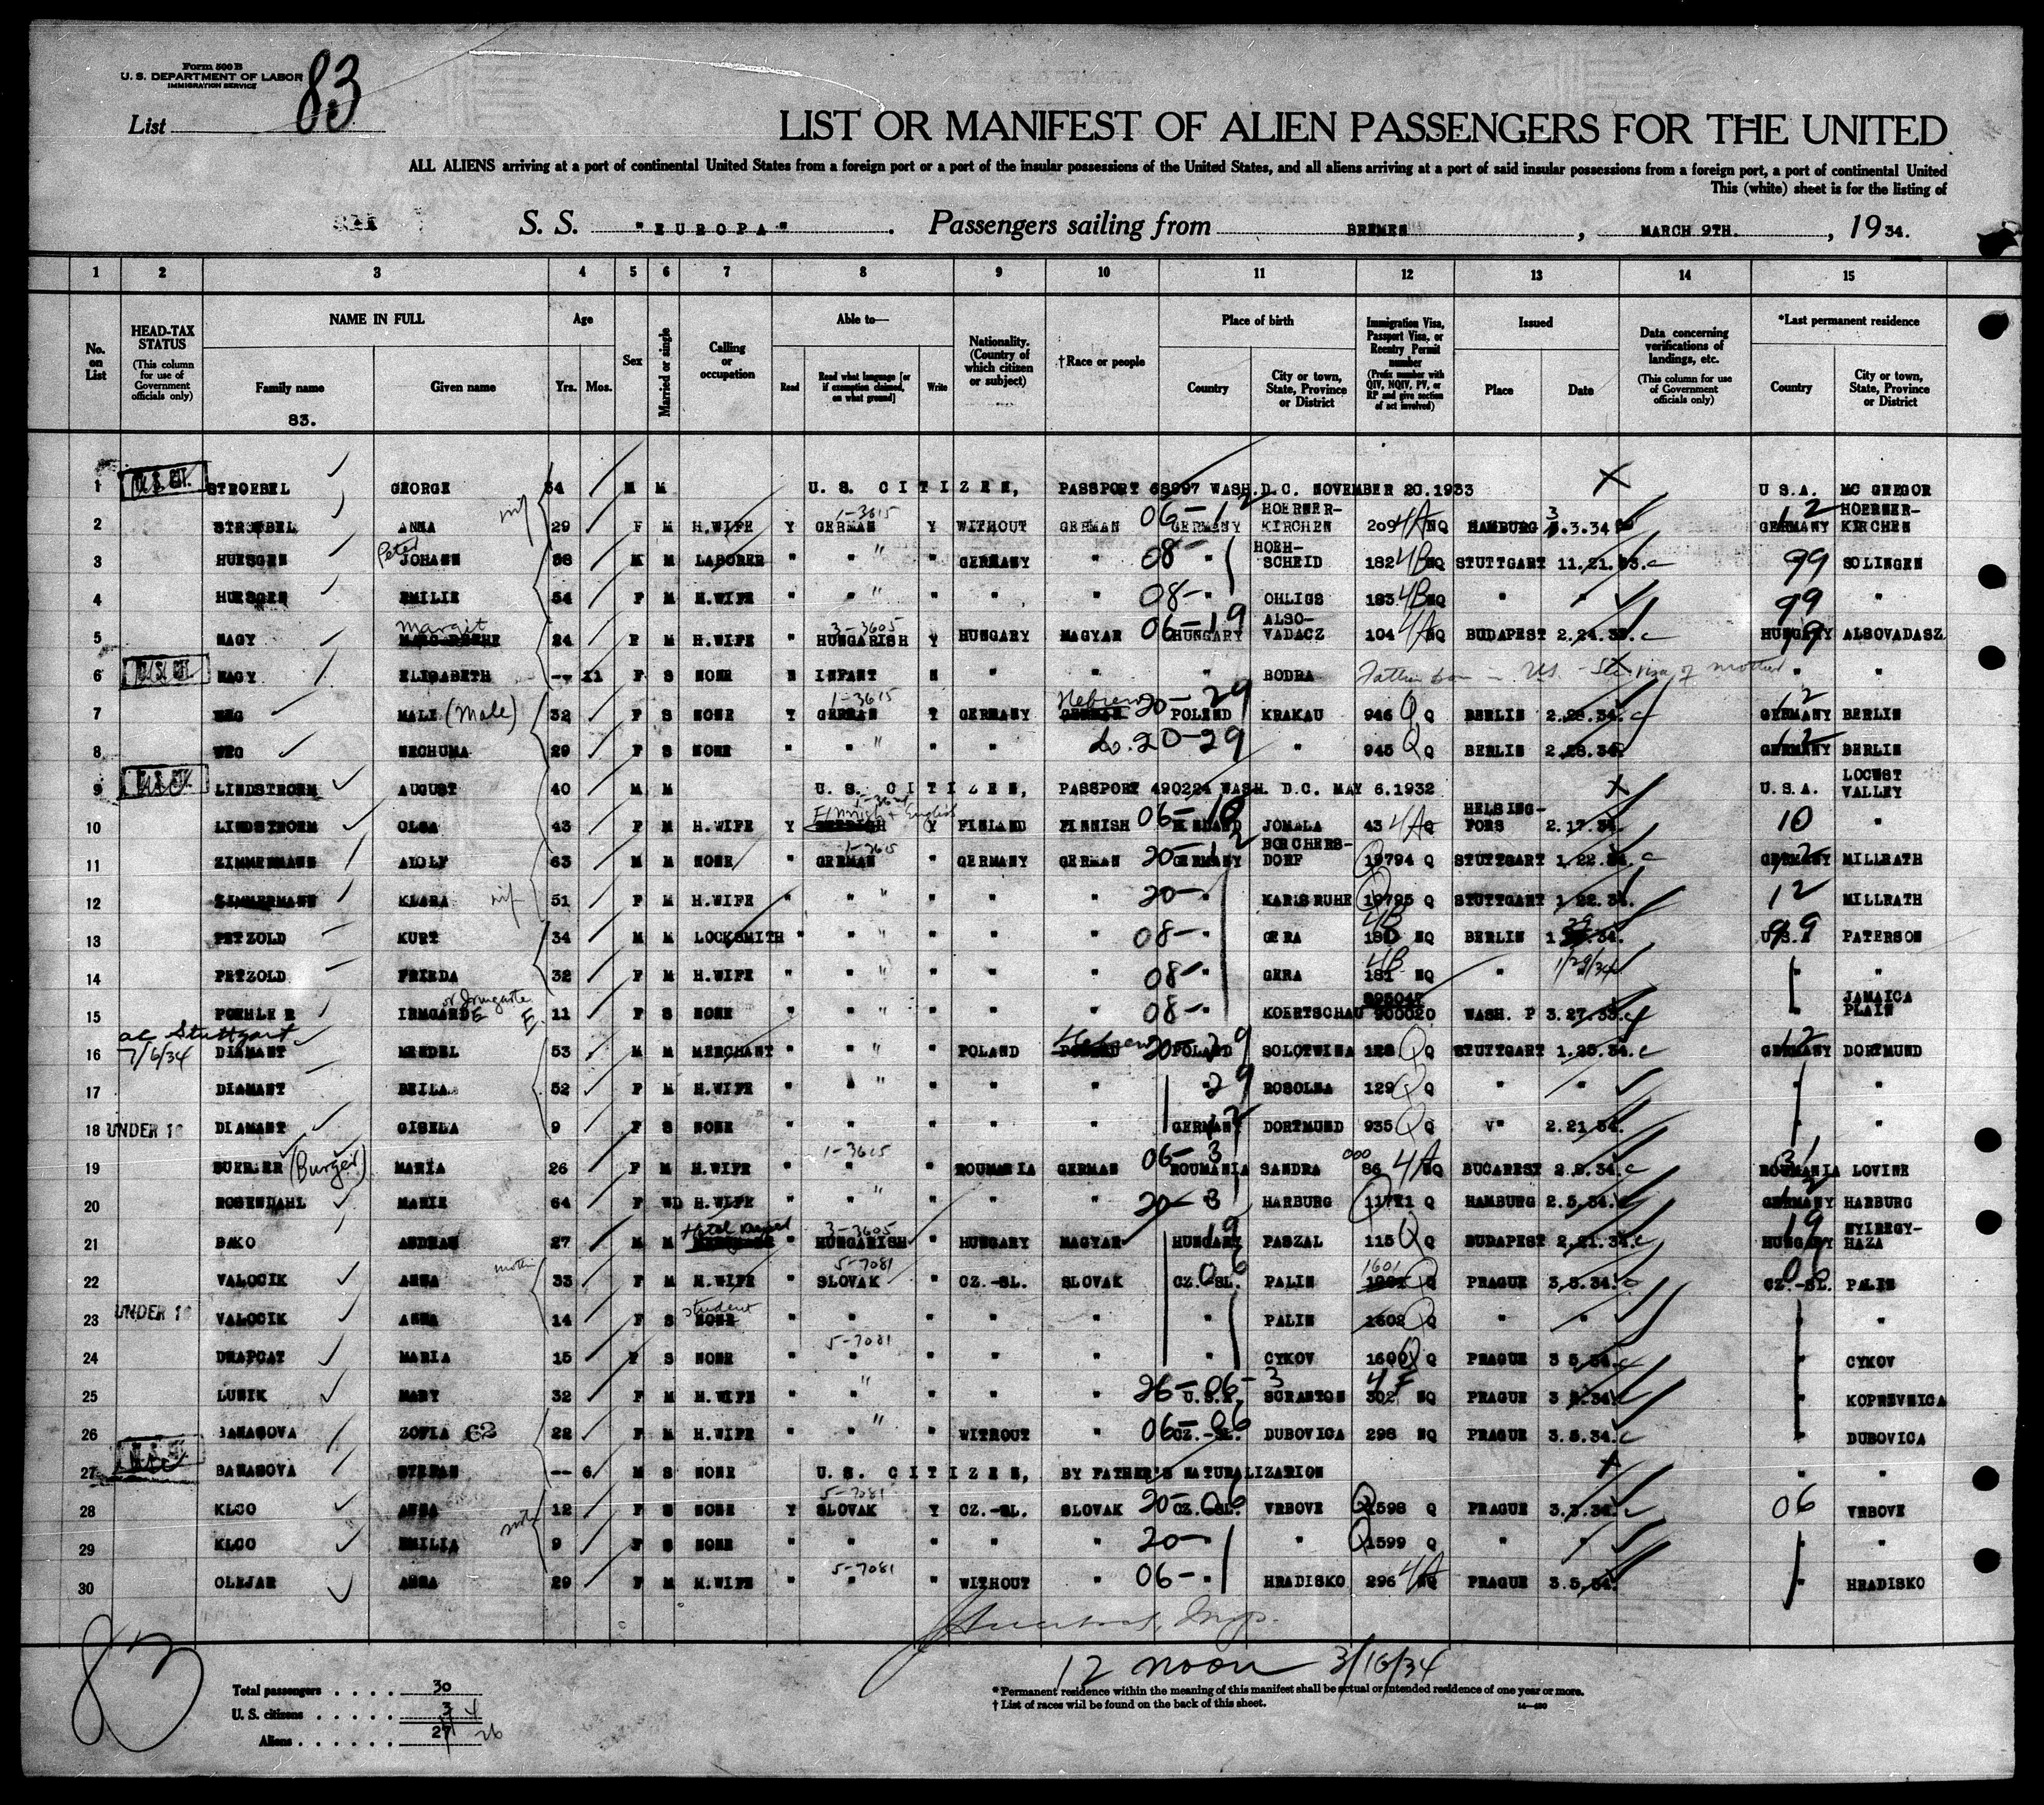 Form 500 B
U. S. DEPARTMENT OF LABOR
IMMIGRATION SERVICE
List 83
LIST OR MANIFEST OF ALIEN PASSENGERS FOR THE UNITED
ALL ALIENS arriving at a port of continental United States from a foreign port or a part of the insular possessions of the United States, and all aliens arriving at a port of said insular possessions from a foreign port, a part of continental United
This (white) sheet is for the listing of
S. S. "EUROPA" . Passengers sailing from BREMEN , MARCH 9TH. , 1934.
1 2 3 4 5 6 7 8 9 10 11 12 13 14 15
No. on List
HEAD-TAX STATUS (This column for use of Government officials only)
NAME IN FULL
Family name
83.
Given name
Age
Yrs. Mos.
Sex
Married or single
Calling or occupation
Able to—
Read
Read what language [or if exemption claimed, on what ground]
Write
Nationality. (Country of which citizen or subject)
†Race or people
Place of birth
Country
City or town, State, Province or District
Immigration Visa, Passport Visa, or Reentry Permit number (Prefix number with QIV, NQIV, PV, or RP and give section of act involved)
Issued
Place
Date
Data concerning verifications of landings, etc. (This column for use of Government officials only)
*Last permanent residence
Country
City or town, State, Province or District
1 U.S. CIT. STROEBEL GEORGE 34 M M U. S. CITIZEN, PASSPORT 68097 WASH.D.C. NOVEMBER 20.1933 U S.A. MC GREGOR
2 STROEBEL ANNA 29 F M H.WIFE Y GERMAN 1-3615 Y WITHOUT GERMAN 06-12 GERMANY HOERNER-KIRCHEN 209 4A NQ HAMBURG 3.3.34 12 GERMANY HOERNER-KIRCHEN
3 HUESGEN Peter JOHANN 58 M M LABORER " " " GERMANY " 08- " HOEH-SCHEID 182 4B NQ STUTTGART 11.21.33. c 99 SOLINGEN
4 HUESGEN EMILIE 54 F M H.WIFE " " " " " 08- " OHLIGS 183 4B NQ " " 99 "
5 NAGY Margit 24 F M H.WIFE " HUNGARISH 3-3605 Y HUNGARY MAGYAR 06-19 HUNGARY ALSO-VADACZ 104 4A NQ BUDAPEST 2.24.34. c 99 HUNGARY ALSOVADASZ
6 U.S. CIT. NAGY ELISABETH -- 11 F S NONE N INFANT N " " " BODRA Father born in US - See visa of mother " "
7 WEG MALE (Male) 32 F S NONE Y GERMAN 1-3615 Y GERMANY Hebrew 20-29 POLEND KRAKAU 946 Q Q BERLIN 2.28.34. c 12 GERMANY BERLIN
8 WEG NECHUMA 29 F S NONE " " " " do. 20-29 " 945 Q Q BERLIN 2.28.34. 12 GERMANY BERLIN
9 U.S. CIT. LINDSTROEM AUGUST 40 M M U. S. CITIZEN, PASSPORT 490224 WASH. D.C. MAY 6.1932 U. S.A. LOCUST VALLEY
10 LINDSTROEM OLGA 43 F M H.WIFE Y Finnish + English Y FINLAND FINNISH 06-10 FINLAND JOMALA 43 4A Q HELSING-FORS 2.17.34. 10 "
11 ZIMMERMANN ADOLF 63 M M NONE " GERMAN 1-3615 " GERMANY GERMAN 20-12 GERMANY BORCHERS-DORF 19794 Q STUTTGART 1.22.34. c 12 GERMANY MILLRATH
12 ZIMMERMANN KLARA 51 F M H.WIFE " " " " " 20- " KARLSRUHE 19795 Q STUTTGART 1.22.34. 12 MILLRATH
13 PETZOLD KURT 34 M M LOCKSMITH " " " " " 08- " GERA 180 4B NQ BERLIN 1.29.34. 99 U.S.A. PATERSON
14 PETZOLD FRIEDA 32 F M H.WIFE " " " " " 08- " GERA 181 4B NQ " 1/29/34 "
15 POEHLER IRMGARDE or Irmgarte E 11 F S NONE " " " " " 08- " KOERTSCHAU 900020 WASH. P 3.27.33. c JAMAICA PLAIN
16 ac Stuttgart 7/6/34 DIAMANT MENDEL 53 M M MERCHANT " " " POLAND Hebrew 20-29 POLAND SOLOTWINA 128 Q Q STUTTGART 1.25.34. c 12 GERMANY DORTMUND
17 DIAMANT BEILA 52 F M H.WIFE " " " " " 29 ROSOLNA 129 Q Q " " " "
18 UNDER 16 DIAMANT GISELA 9 F S NONE " " " " " 12 GERMANY DORTMUND 935 Q Q " 2.21.34. " "
19 BUERGER (Burger) MARIA 26 F M H.WIFE " 1-3615 " " ROUMANIA GERMAN 06-31 ROUMANIA SANDRA 86 4A NQ BUCAREST 2.8.34. c 31 ROUMANIA LOVINE
20 ROSENDAHL MARIE 64 F WD H.WIFE " " " " " 20-3 HARBURG 11771 Q HAMBURG 2.5.34. 12 GERMANY HARBURG
21 BAKO ANDRAS 27 M M " HUNGARISH 3-3605 " HUNGARY MAGYAR 19 HUNGARY PASZAL 115 Q Q BUDAPEST 2.21.34. c 19 HUNGARY NYIREGY-HAZA
22 VALOCIK ANNA mother 33 F M H.WIFE " SLOVAK 5-7081 " CZ.-SL. SLOVAK 06 CZ.-SL. PALIN 1601 Q PRAGUE 3.5.34. c 06 CZ.-SL. PALIN
23 UNDER 16 VALOCIK ANNA 14 F S student NONE " " " " " " PALIN 1602 Q " " " "
24 DRAPCAT MARIA 15 F S NONE " 5-7081 " " " " " CYKOV 1600 Q PRAGUE 3.5.34. c " CYKOV
25 LUNIK MARY 32 F M H.WIFE " " " " " 26-06-3 U.S.A. SCRANTON 302 4F NQ PRAGUE 3.5.34. " KOPREVNICA
26 BANASOVA ZOFIA 62 22 F M H.WIFE " " " WITHOUT " 06-06 CZ.-SL. DUBOVICA 298 NQ PRAGUE 3.5.34. c " DUBOVICA
27 U.S. CIT. BANASOVA STEFAN -- 6 M S NONE U. S. CITIZEN, BY FATHER'S NATURALIZATION " "
28 KLCO ANNA 12 F S NONE Y SLOVAK 5-7081 Y CZ.-SL. SLOVAK 20-06 CZ.-SL. VRBOVE 1598 Q PRAGUE 3.5.34. c 06 VRBOVE
29 KLCO EMILIA 9 F S NONE " " " " " 20- " " 1599 Q " " " "
30 OLEJAR ANNA 29 F M H.WIFE " 5-7081 " " WITHOUT " 06- " HRADISKO 296 4A NQ PRAGUE 3.5.34. " HRADISKO
12 noon 3/16/34
83
Total passengers . . . . 30
U. S. citizens . . . . . 3 4
Aliens . . . . . . 27 26
*Permanent residence within the meaning of this manifest shall be actual or intended residence of one year or more.
† List of races will be found on the back of this sheet.